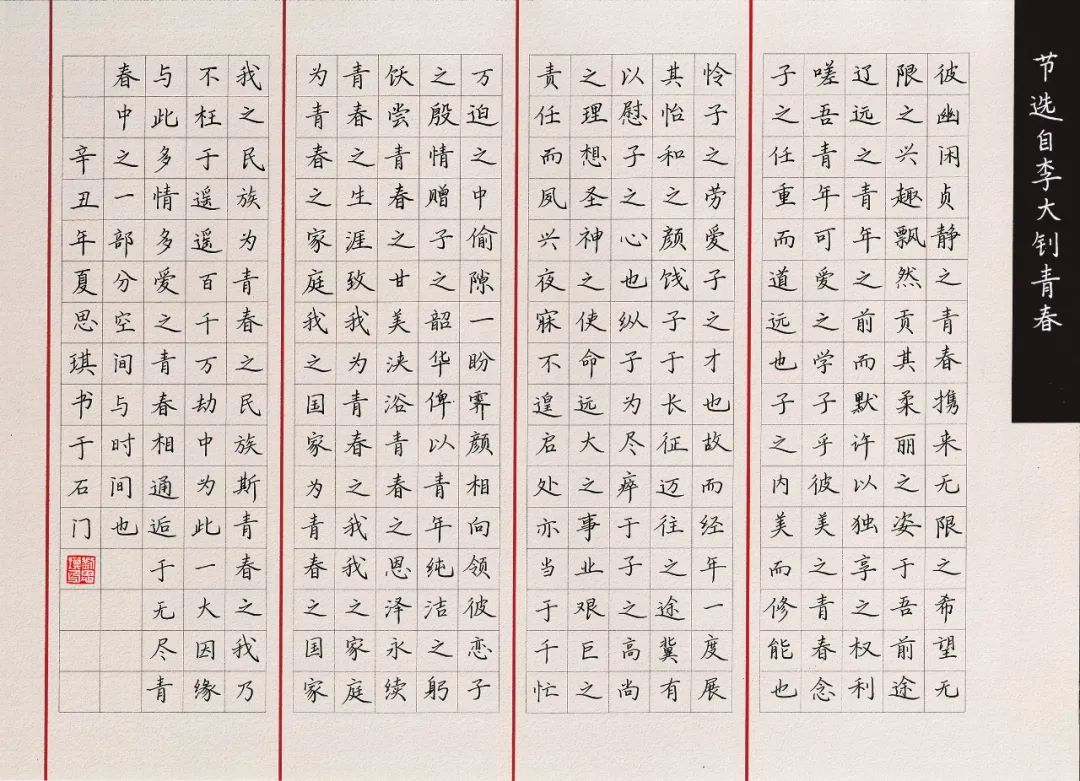 节选自李大钊青春
彼幽闲贞静之青春携来无限之希望无
限之兴趣飘然贡其柔丽之姿于吾前途
辽远之青年之前而默许以独享之权利
嗟吾青年可爱之学子乎彼美之青春念
子之任重而道远也子之内美而修能也
怜子之劳爱子之才也故而经年一度展
其怡和之颜饯子于长征迈往之途冀有
以慰子之心也纵子为尽瘁于子之高尚
之理想圣神之使命远大之事业艰巨之
责任而夙兴夜寐不遑启处亦当于千忙
万迫之中偷隙一盼霁颜相向领彼恋子
之殷情赠子之韶华俾以青年纯洁之躬
饫尝青春之甘美浃浴青春之恩泽永续
青春之生涯致我为青春之我我之家庭
为青春之家庭我之国家为青春之国家
我之民族为青春之民族斯青春之我乃
不枉于遥遥百千万劫中为此一大因缘
与此多情多爱之青春相通逅于无尽青
春中之一部分空间与时间也
辛丑年夏思琪书于石门